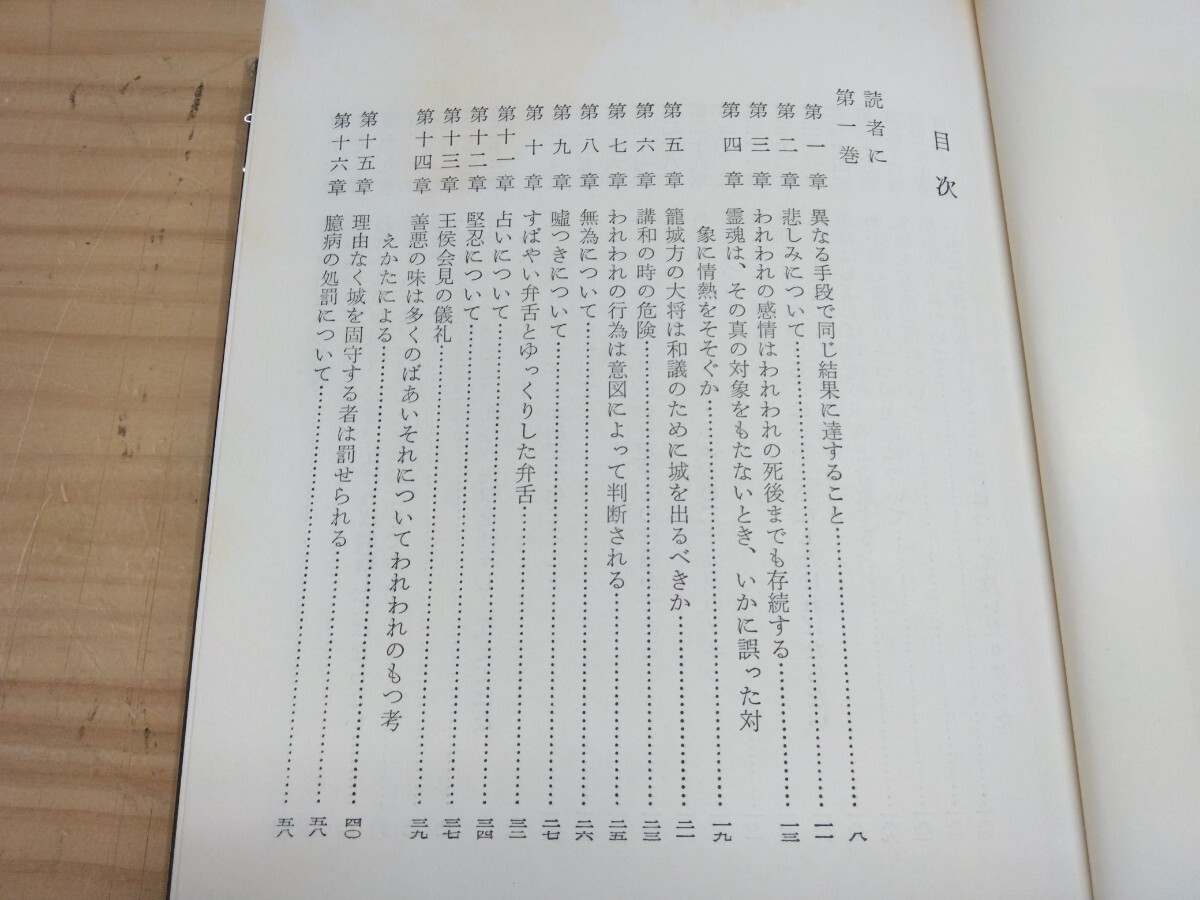 目次
読者に
第一巻
第一章 異なる手段で同じ結果に達すること……八
第二章 悲しみについて……一一
第三章 われわれの感情はわれわれの死後までも存続する……一三
第四章 霊魂は、その真の対象をもたないとき、いかに誤った対
象に情熱をそそぐか……一九
第五章 籠城方の大将は和議のために城を出るべきか……二一
第六章 講和の時の危険……二三
第七章 われわれの行為は意図によって判断される……二五
第八章 無為について……二六
第九章 嘘つきについて……二七
第十章 すばやい弁舌とゆっくりした弁舌……三二
第十一章 占いについて……三四
第十二章 堅忍について……三七
第十三章 王侯会見の儀礼……三九
第十四章 善悪の味は多くのばあいそれについてわれわれのもつ考
えかたによる……四〇
第十五章 理由なく城を固守する者は罰せられる……五八
第十六章 臆病の処罰について……五八